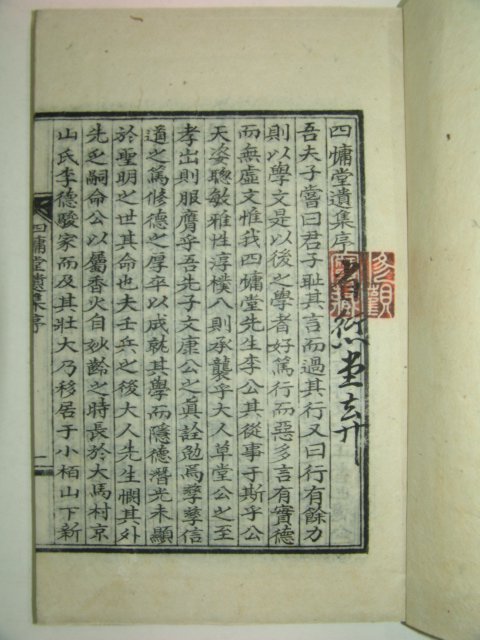 四慵堂遺集序
吾夫子嘗曰君子恥其言而過其行又曰行有餘力
則以學文是以後之學者好篤行而惡多言有實德
而無虛文惟我四慵堂先生李公其從事于斯乎公
天姿聰敏雅性淳樸入則承襲乎大人草堂公之至
孝出則服膺乎吾先子文康公之眞詮勉焉孳孳信
道之篤修德之厚卒以成就其學而隱德潛光未顯
於聖明之世其命也夫壬兵之後大人先生憫其外
先之乏嗣命公以屬香火自妙齡之時長於大馬村京
山氏李德駿家而及其壯大乃移居于小栢山下新
四慵堂遺集序
一